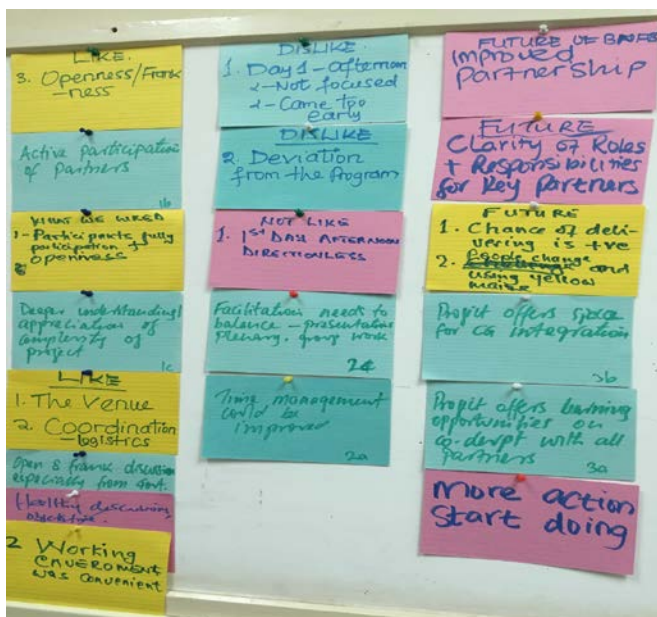 LIKE.
3. Openness/Frank
-ness
Active participation
of partners
1b
WHAT WE LIKED
1- Participants fully
participation +
openness
Deeper understanding/
appreciation of
complexity of
project
1c
LIKE
1. The Venue
2. Coordination
-logistics
Open & frank discussion
especially from Govt.
Healthy discussions,
2 Working
ENVEROMENT
was convenient
DISLIKE.
1. Day 1 - afternoon
- Not focused
- Came too
early
DISLIKE
2. Deviation
from the Program
NOT LIKE
1. 1ST DAY AFTERNOON
DIRECTIONLESS
Facilitation needs to
balance - presentation
plenary, group work
2c
Time management
could be
improved
2a
FUTURE OF BNFB
improved
PartnerShip
FUTURE
Clarity of Roles
+ Responsibilities
for Key Partners
FUTURE
1. Chance of deli-
vering is +ve
2. change and
using yellow
maize
Project offers space
for CG integration
3b
Project offers learning
opportunities on
co-devpt with all
partners
3a
More action
start doing